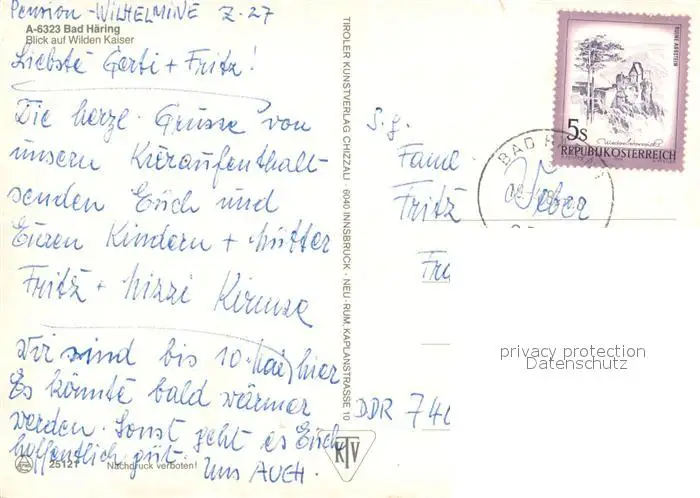 Pension-WILHELMINE Z.27
A-6323 Bad Häring
Blick auf Wilden Kaiser
Liebste Gerti + Fritz!
Die herzl. Grüsse von
unsern Kuraufenthalt-
senden Euch und
Euren Kindern + Mutter
Fritz + Mizzi
Wir sind bis 10. Mai hier
Es könnte bald wärmer
werden. Sonst geht es Euch
hoffentlich gut. Uns AUCH.
25121 Nachdruck verboten!
TIROLER KUNSTVERLAG CHIZZALI 6040 INNSBRUCK - NEU-RUM, KAPLANSTRASSE 10
KTV
RUINE AGGSTEIN
5S
REPUBLIK ÖSTERREICH
BAD H
S.g.
Fame
Fritz Weber
DDR 740
privacy protection
Datenschutz